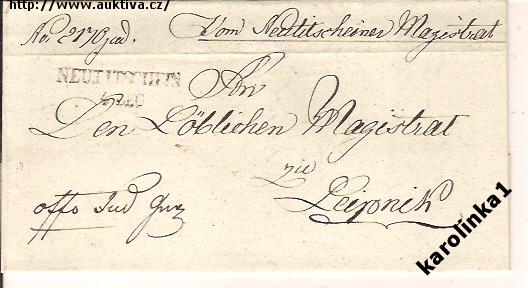 http://www.auktiva.cz/
Vom Neutitscheiner Magistrat
NEUTITSCHEIN
An
Den Löblichen Magistrat
zu
Leipnik
offo Jud
karolinka1